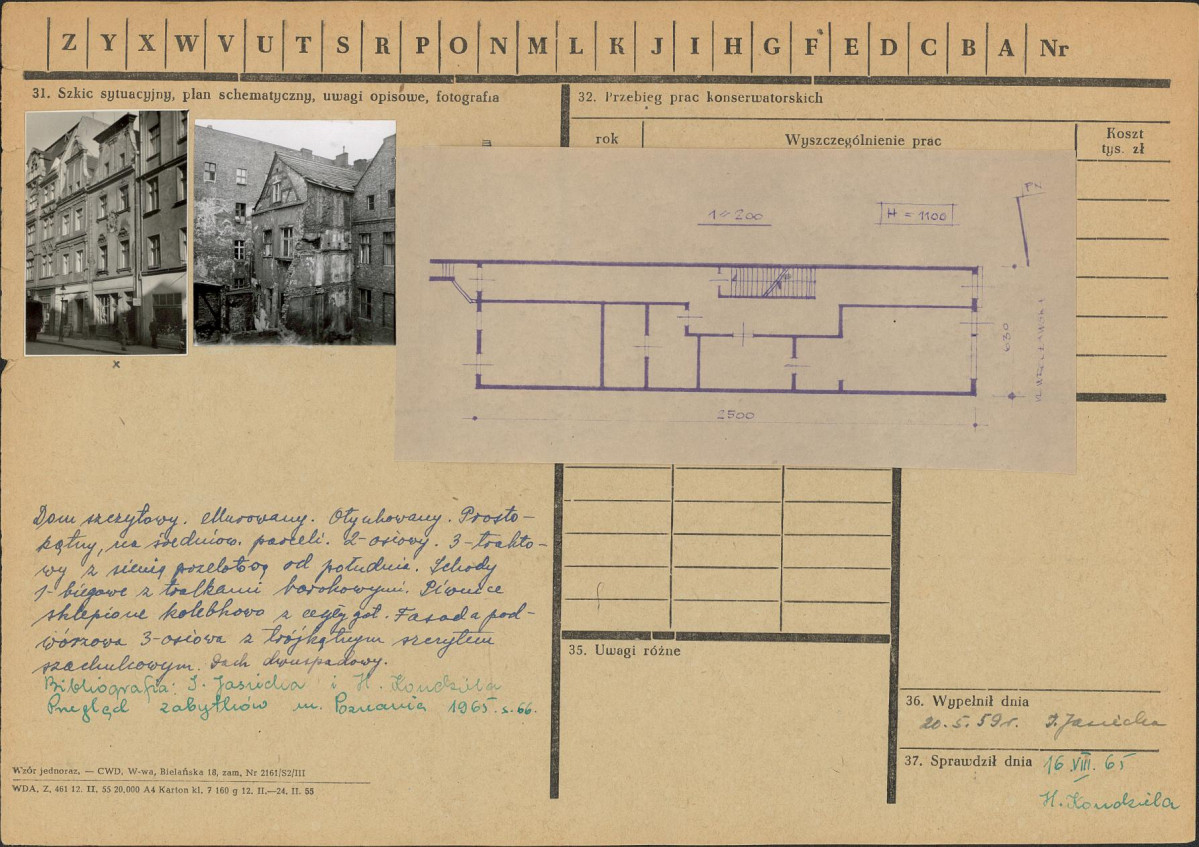 Z Y X W V U T S R P O N M L K J I H G F E D C B A Nr
31. Szkic sytuacyjny, plan schematyczny, uwagi opisowe, fotografia
32. Przebieg prac konserwatorskich
rok
Wyszczególnienie prac
Koszt
tys. zł
m
1:200
H = 1100
PN
630
UL. WROCŁAWSKA
2500
x
Dom szczytowy. Murowany. Otynkowany. Prosto-
kątny, na średniow. parceli. 2-osiowy. 3-trakto-
wy z sienią przelotową od południa. Schody
1-biegowe z tralkami barokowymi. Piwnice
sklepione kolebkowo z cegły got. Fasada pod-
wórzowa 3-osiowa z trójkątnym szczytem
szachulcowym. Dach dwuspadowy.
Bibliografia: I. Jasicka i H. Kondziela
Przegląd zabytków m. Poznania 1965. s. 66.
35. Uwagi różne
36. Wypełnił dnia
20. 5. 59 r. I. Jasicka
37. Sprawdził dnia 16. VIII. 65
H. Kondziela
Wzór jednoraz. — CWD, W-wa, Bielańska 18, zam. Nr 2161/S2/III
WDA, Z. 461 12. II. 55 20.000 A4 Karton kl. 7 160 g 12. II.—24. II. 55